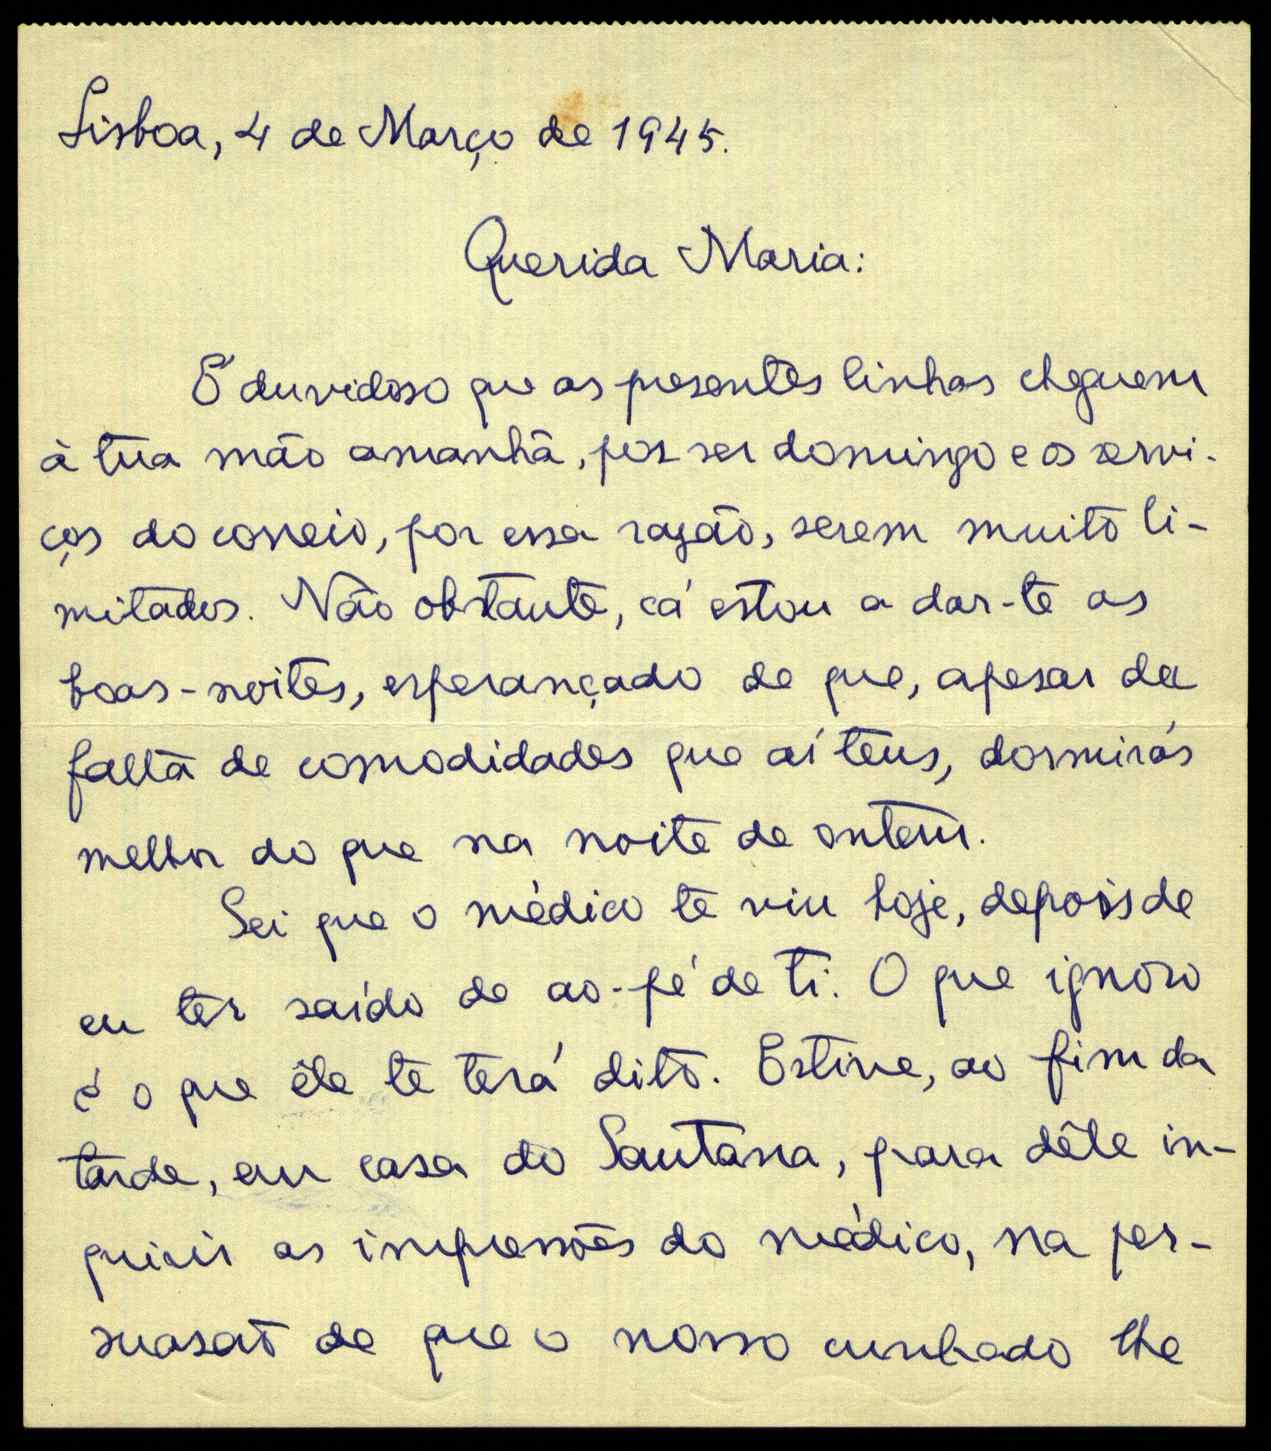 Lisboa, 4 de Março de 1945.
Querida Maria:
É duvidoso que as presentes linhas cheguem
à tua mão amanhã, por ser domingo e os servi-
ços do correio, por essa razão, serem muito li-
mitados. Não obstante, cá estou a dar-te as
boas-noites, esperançado de que, apesar da
falta de comodidades que aí tens, dormirás
melhor do que na noite de ontem.
Sei que o médico te viu hoje, depois de
eu ter saído de ao-pé de ti. O que ignoro
é o que êle te terá dito. Estive, ao fim da
tarde, em casa do Santana, para dêle in-
quirir as impressões do médico, na per-
suasão de que o nosso cunhado lhe